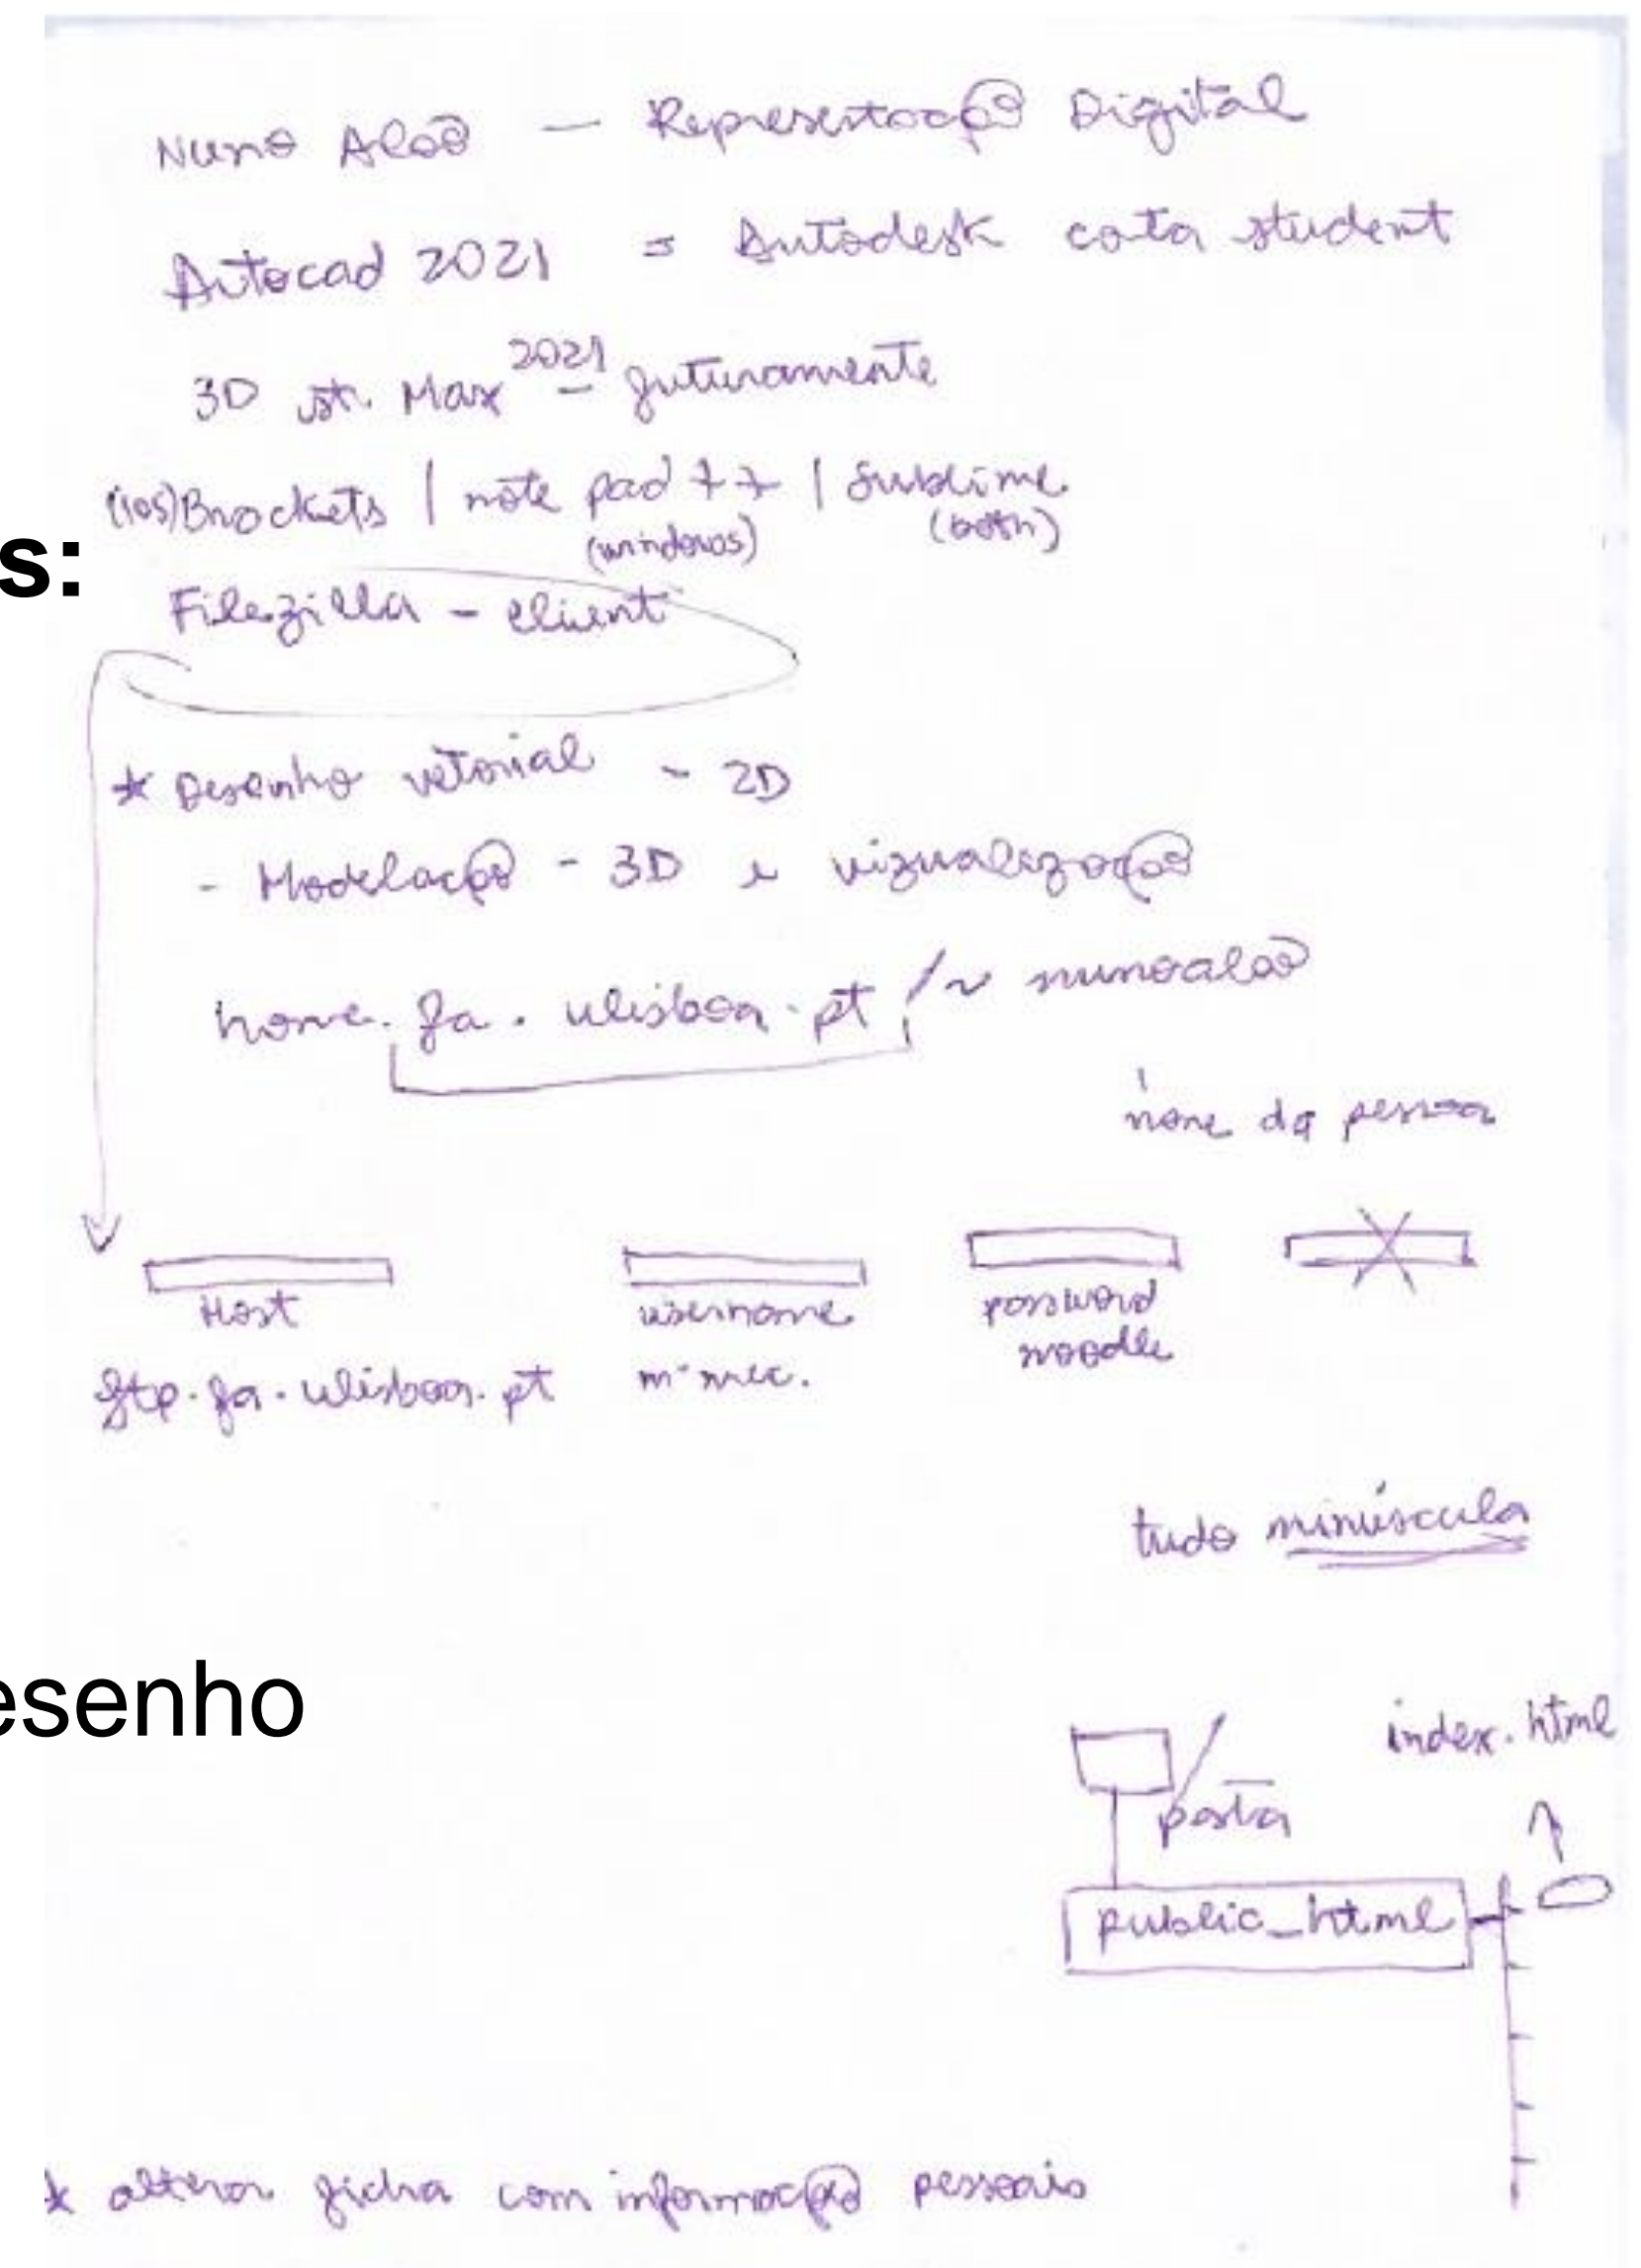 Nuno Alão — Representação Digital
Autocad 2021 = Autodesk cota student
3D st. Max 2021 - futuramente
(ios) Brackets | note pad ++ | Sublime
(windows) (both)
s:
Filezilla - client
* Desenho vetorial - 2D
- Modelação - 3D e vizualização
home.fa.ulisboa.pt/~nunoalão
nome da pessoa
Host username password
moodle
ftp.fa.ulisboa.pt nº mec.
tudo minúscula
esenho
index.html
pasta
public_html
* alterar ficha com informação pessoais